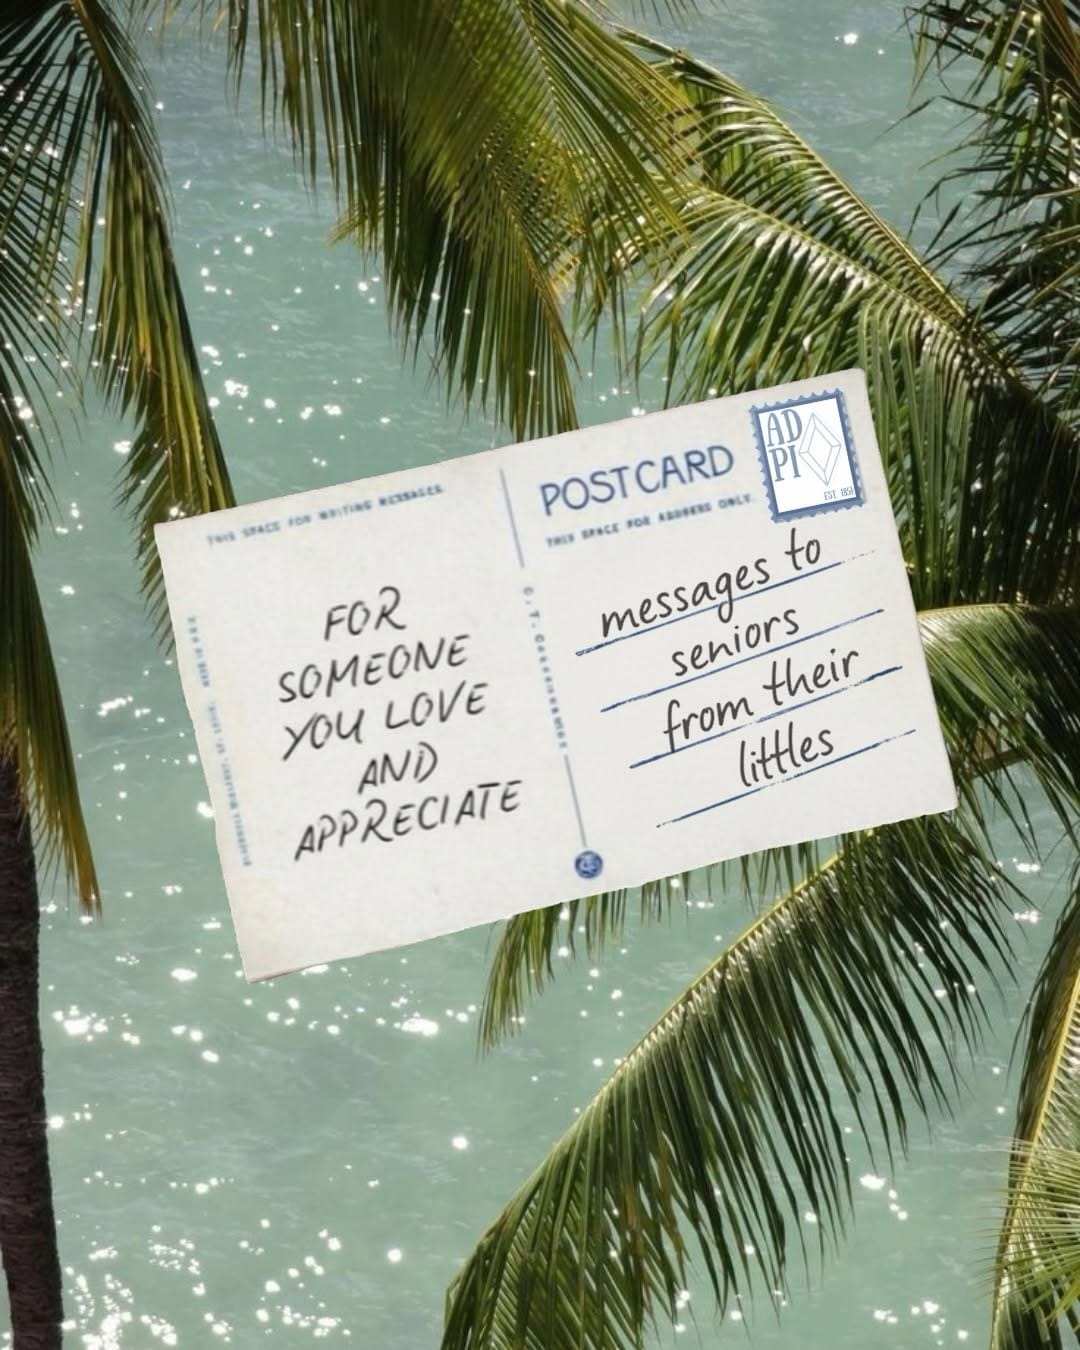 THIS SPACE FOR WRITING MESSAGES
POSTCARD
THIS SPACE FOR ADDRESS ONLY
AD
PI
EST. 1851
FOR
SOMEONE
YOU LOVE
AND
APPRECIATE
messages to
seniors
from their
littles